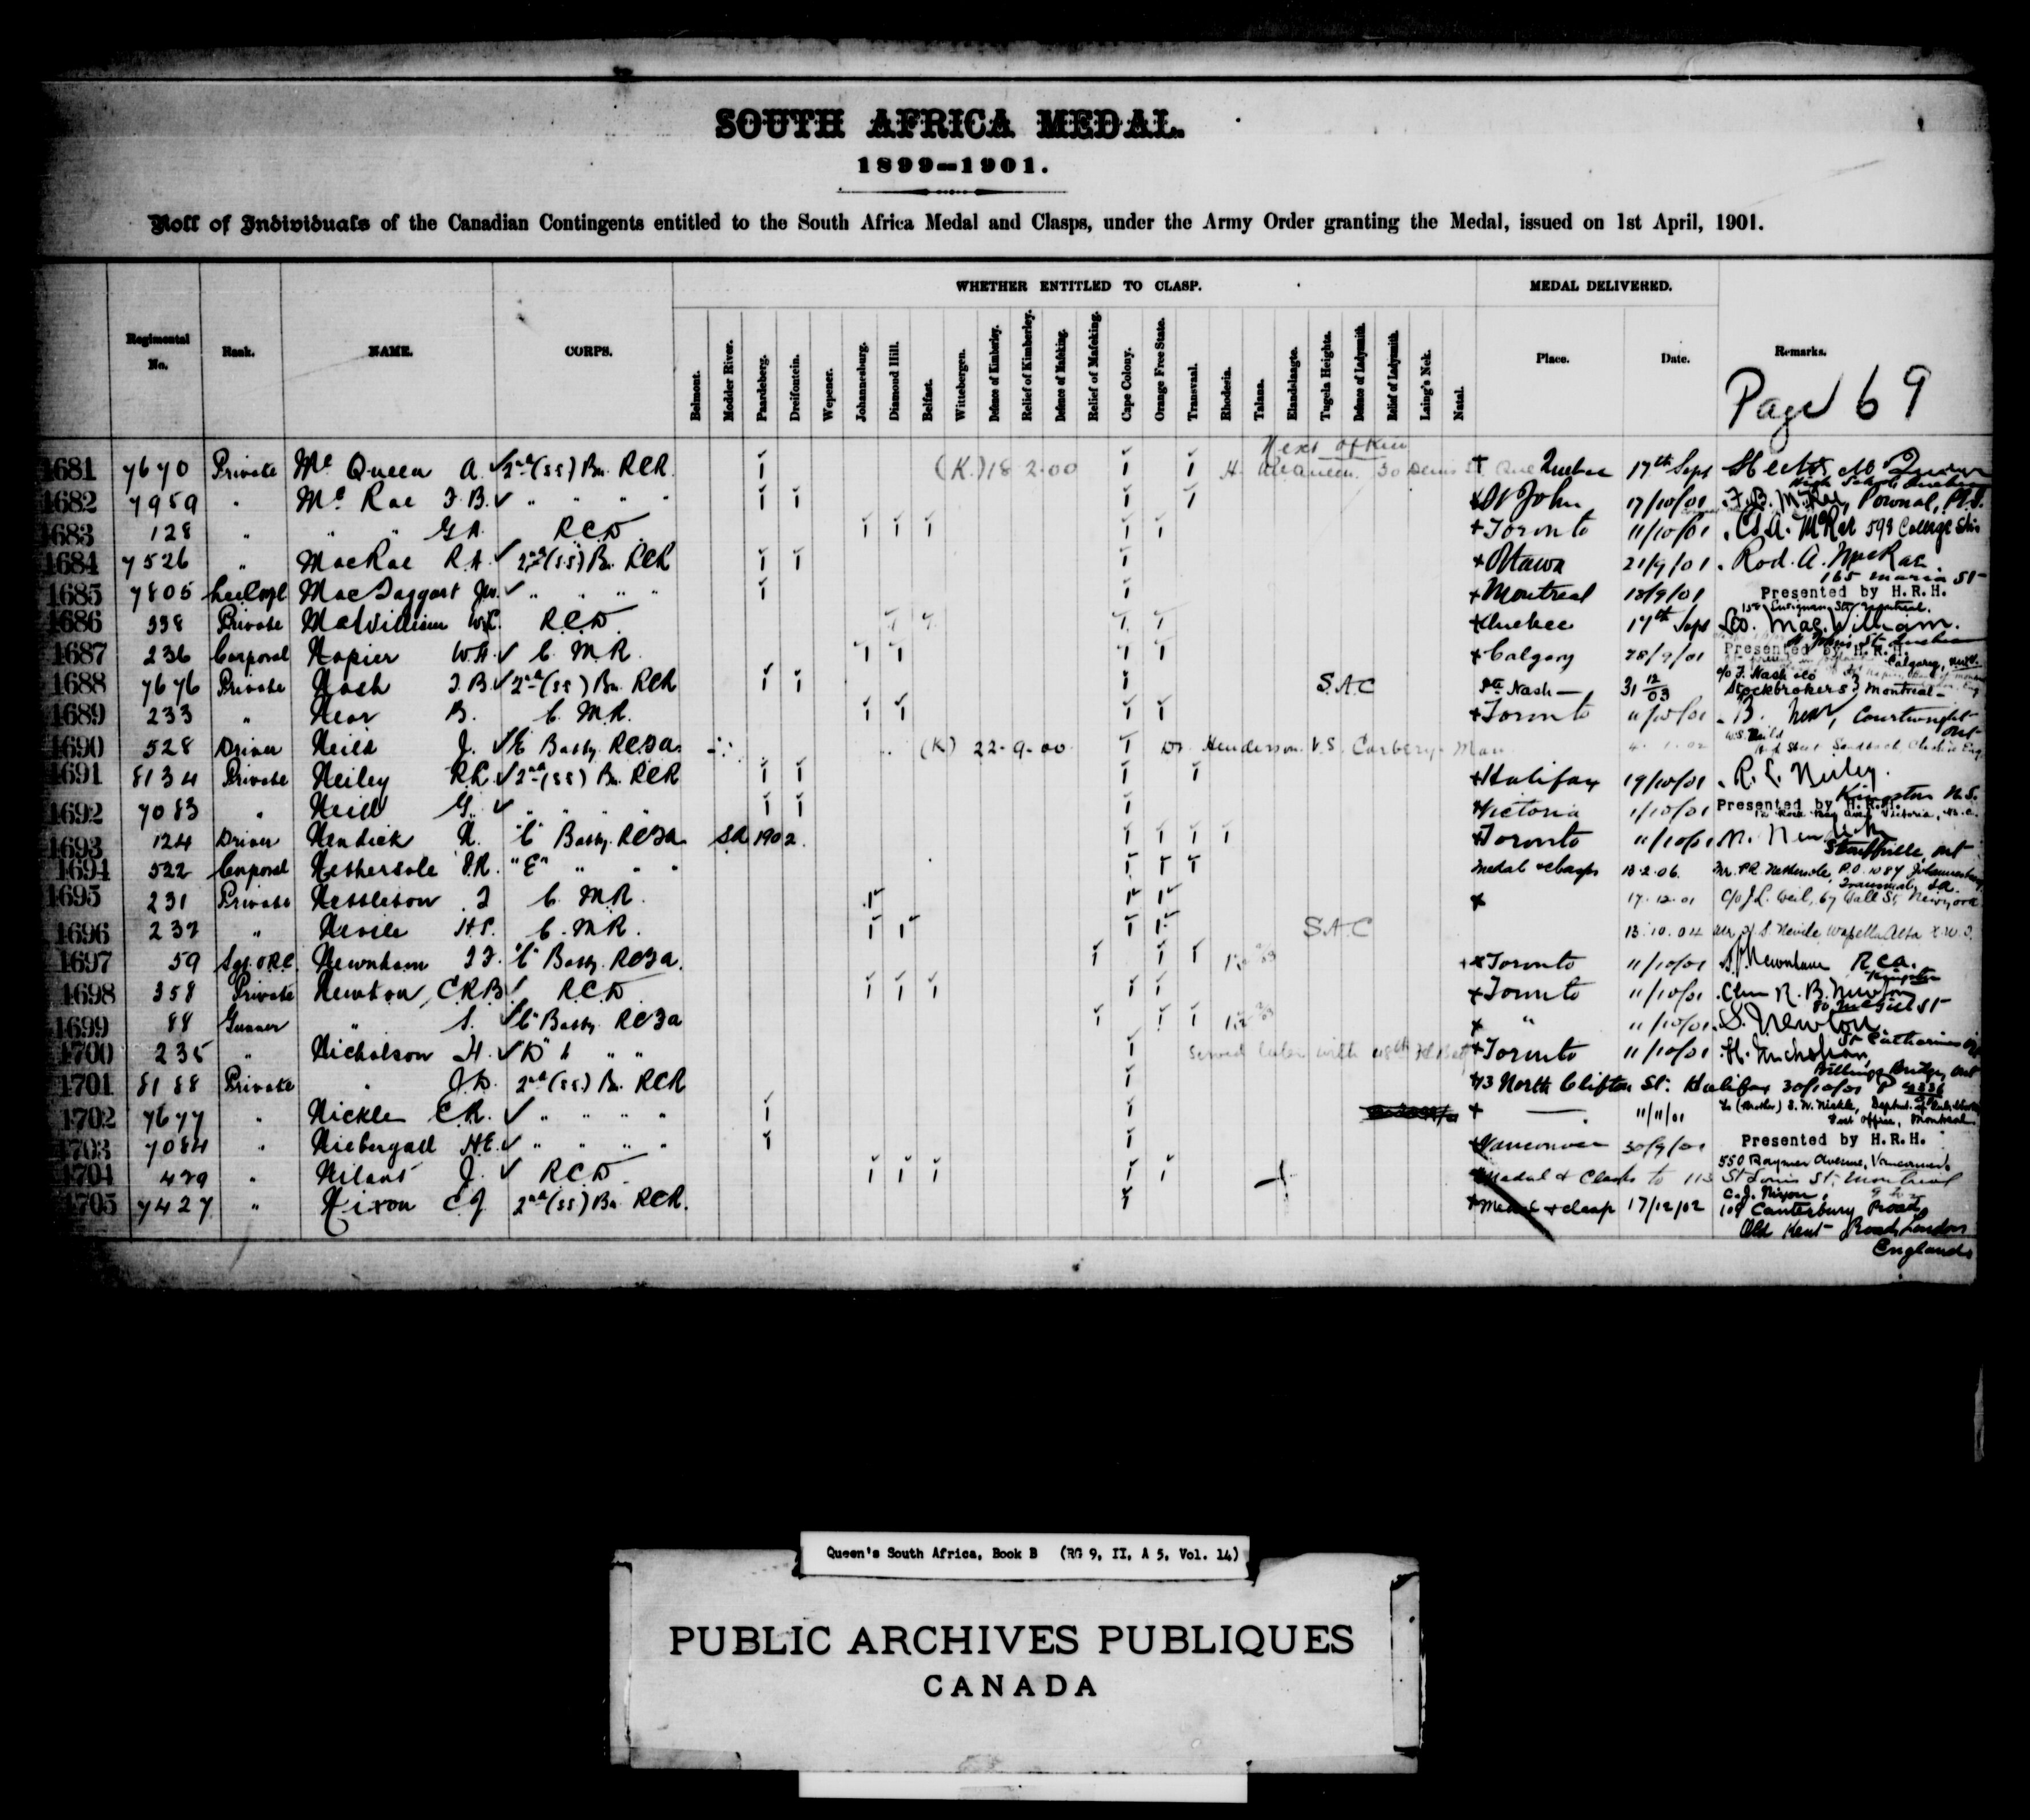 SOUTH AFRICA MEDAL.
1899—1901.
Roll of Individuals of the Canadian Contingents entitled to the South Africa Medal and Clasps, under the Army Order granting the Medal, issued on 1st April, 1901.
WHETHER ENTITLED TO CLASP. MEDAL DELIVERED.
Regimental No. Rank. NAME. CORPS. Belmont. Modder River. Paardeberg. Dreifontein. Wepener. Johannesburg. Diamond Hill. Belfast. Wittebergen. Defence of Kimberley. Relief of Kimberley. Defence of Mafeking. Relief of Mafeking. Cape Colony. Orange Free State. Transvaal. Rhodesia. Talana. Elandslaagte. Tugela Heights. Defence of Ladysmith. Relief of Ladysmith. Laing's Nek. Natal. Place. Date. Remarks.
Page 69
Next of Kin
1681 7670 Private Mc Queen A. ✓ 2nd (SS) Bn. RCR. 1 (K.) 18-2-00 1 1 H. McQueen 30 Denis St Que Quebec 17th Sept
High School Quebec
1682 7959 " Mc Rae F.B. ✓ " " " " 1 1 1 1 + St John 17/10/01 F.B. McRae, Pownal, P.E.I.
1683 128 " " " G.A. RCD 1 1 1 1 1 + Toronto 11/10/01 G.A. McRae 593 College St
1684 7526 " MacRae R.A. ✓ 2nd (SS) Bn. RCR 1 1 1 + Ottawa 21/9/01 Rod. A. MacRae
165 Maria St
1685 7805 MacTaggart ✓ " " " " 1 1 + Montreal 18/9/01 Presented by H.R.H.
1686 338 Private MacWilliam RCD 1 1 1 1 + Quebec 17th Sept Geo. MacWilliam.
1687 236 Corporal Napier W.H. ✓ C.M.R. 1 1 1 1 + Calgary 28/9/01 Presented by H.R.H.
Calgary, N.W.T.
1688 7676 Private Nash J.B. ✓ 2nd (SS) Bn. RCR 1 1 1 S.A.C Pte Nash — 31 12/03 c/o F. Nash & Co
Stockbrokers Montreal —
1689 233 " Near B. C.M.R. 1 1 1 1 + Toronto 11/10/01 B. Near, Courtwright
Ont
1690 528 Driver Neild J. ✓ E Batty. RCFA. (K) 22-9-00 1 Dr. Henderson V.S. Carbery Man 4.1.02 W.S. Neild
Sandbach Cheshire Eng
1691 8134 Private Neiley R.L. ✓ 2nd (SS) Bn. RCR 1 1 1 1 + Halifax 19/10/01 R. L. Neiley.
Kingston N.S.
1692 7083 " Neill G. ✓ " " " " 1 1 1 Victoria 1/10/01 Presented by H.R.H.
Victoria, B.C.
1693 124 Driver Nendick N. "C" Batty. RCFA SA 1902. 1 1 1 1 + Toronto 11/10/01 N. Nendick
Stouffville, Ont
1694 522 Corporal Nethersole P.R. "E" " " 1 1 1 Medal & clasps 13-2-06. Mr. P.R. Nethersole, P.O. 1087 Johannesburg,
Transvaal, SA.
1695 231 Private Nettleton J C.M.R. 1 1 1 + 17-12-01 C/o J.L. Weil, 67 Wall St, New York
1696 232 " Nevile H.S. C.M.R. 1 1 1 1 S.A.C 13.10.04 Mr H.S. Nevile Wapella Assa N.W.T.
1697 59 Newnham "C" Batty. RCFA. 1 1 1 + Toronto 11/10/01 Newnham RCA.
Kingston
1698 358 Private Newton, C.R.B ✓ RCD 1 1 1 1 1 + Toronto 11/10/01 R.B. Newton
80 McGill St
1699 88 Gunner " S. ✓ "C" Batty. RCFA 1 1 1 + " 11/10/01 S. Newton
St Catharines
1700 235 " Nicholson H. ✓ "D" " " 1 Served later with 48th Fd Baty + Toronto 11/10/01 H. Nicholson,
Billings Bridge, Ont
1701 8188 Private " J.D. 2nd (SS) Bn. RCR 1 43 North Clifton St: Halifax 30/10/01
1702 7677 " Nickle C.R. ✓ " " " " 1 1 + — 11/11/01 To (Brother) S. W. Nickle,
Post Office, Montreal.
1703 7084 " Niebergall H.E. ✓ " " " " 1 1 + Vancouver 30/9/01 Presented by H.R.H.
550 Raymur Avenue, Vancouver.
1704 479 " Nilant J. ✓ RCD 1 1 1 1 1 Medal & Clasps to 113 St Louis St. Montreal
1705 7427 " Nixon C.J 2nd (SS) Bn RCR. 1 + Medal & clasp 17/12/02 C.J. Nixon,
109 Canterbury Road
Old Kent Road, London
England
Queen's South Africa, Book B (RG 9, II, A 5, Vol. 14)
PUBLIC ARCHIVES PUBLIQUES
CANADA